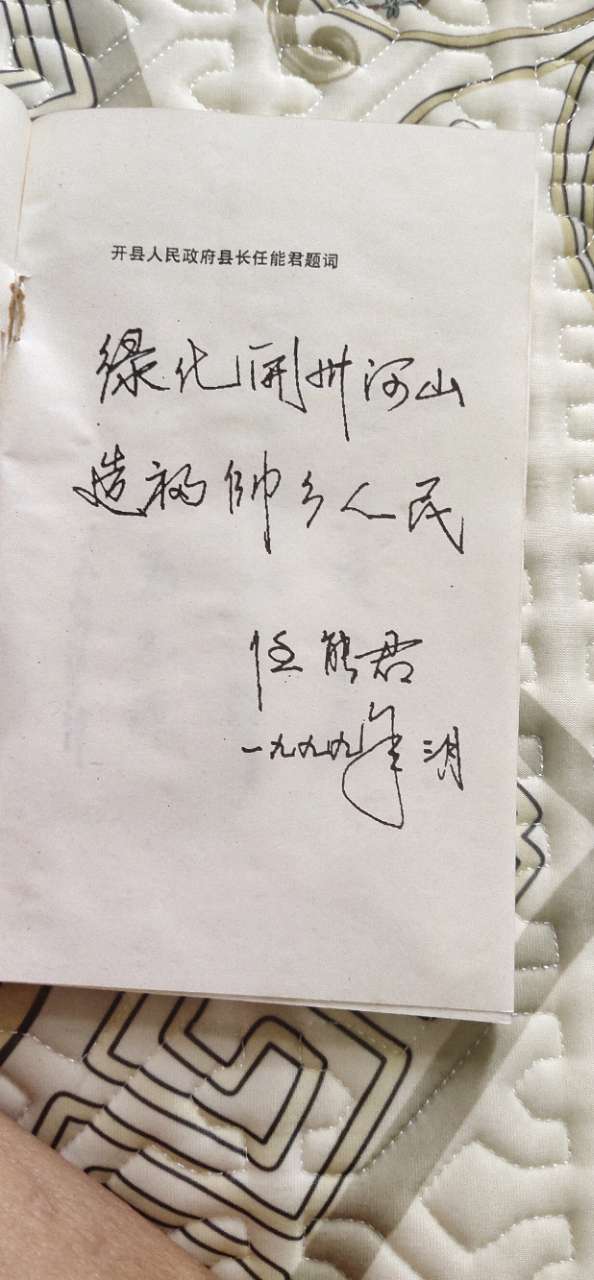 开县人民政府县长任能君题词
绿化開州河山
造福帅乡人民
任能君
一九九九年三月